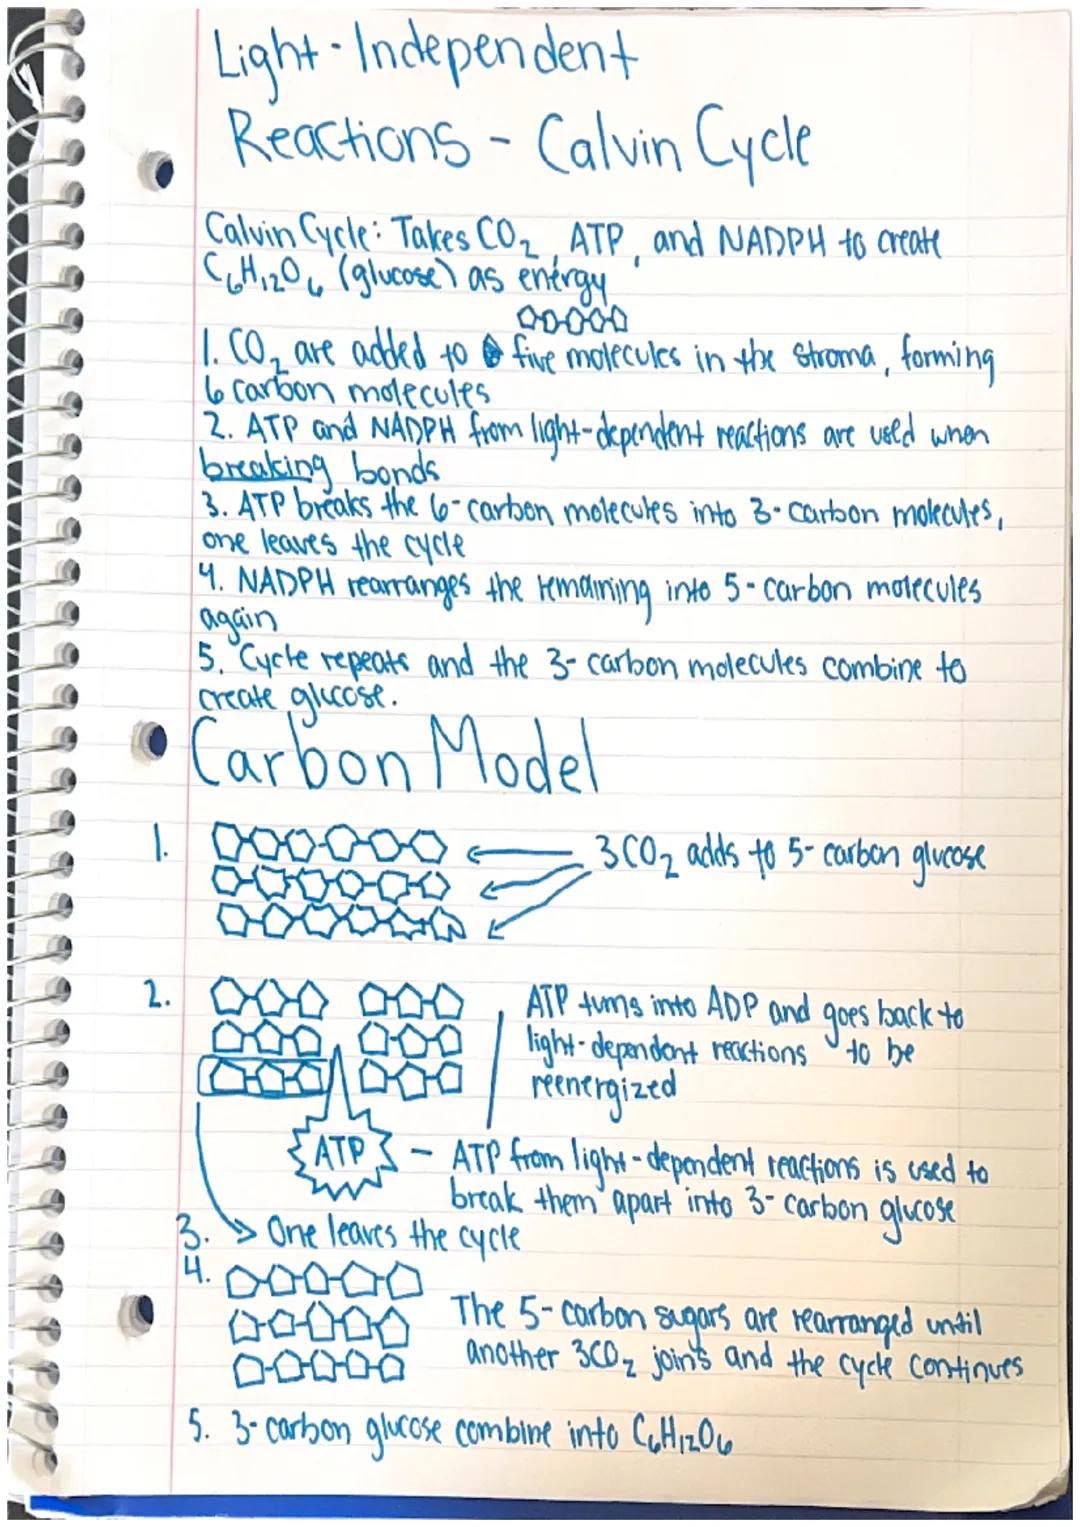 Light-Independent
Reactions - Calvin Cycle
Calvin Cycle: Takes CO₂, ATP, and NADPH to create
C₆H₁₂O₆ (glucose) as energy
1. CO₂ are added to five molecules in the stroma, forming
6 carbon molecules
2. ATP and NADPH from light-dependent reactions are used when
breaking bonds
3. ATP breaks the 6-carbon molecules into 3-carbon molecules,
one leaves the cycle
4. NADPH rearranges the remaining into 5-carbon molecules
again
5. Cycle repeats and the 3-carbon molecules combine to
create glucose.
Carbon Model
1. 3CO₂ adds to 5-carbon glucose
2. ATP turns into ADP and goes back to
light-dependent reactions to be
reenergized
ATP - ATP from light-dependent reactions is used to
break them apart into 3-carbon glucose
3. One leaves the cycle
4. The 5-carbon sugars are rearranged until
another 3CO₂ joins and the cycle continues
5. 3-carbon glucose combine into C₆H₁₂O₆